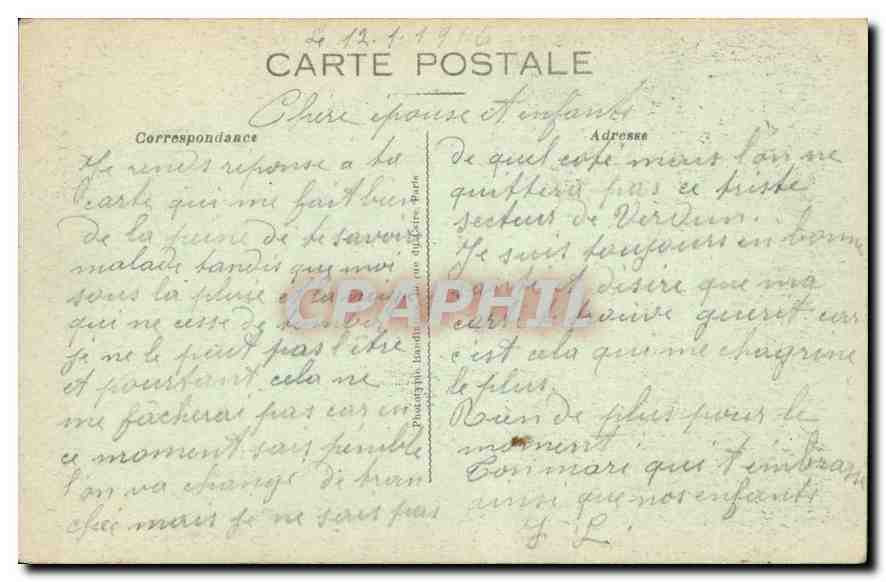 Le 12.1.1916
CARTE POSTALE
Chère épouse et enfants
Correspondance
Je rends reponse a ta
carte qui me fait bien
de la peine de te savoir
malade tandis que moi
sous la pluie et la neige
qui ne cesse de tomber
je ne le peut pas l'être
et pourtant cela ne
me fâcherai pas car en
ce moment sais pénible
l'on va changé de tran
chée mais je ne sais pas
Phototypie Baudin rue du Paris
Adresse
de quel coté mais l'on ne
quittera pas ce triste
secteur de Verdun.
Je suis toujours en bonne
santé et désire que ma
carte trouve guerit car
c'est cela qui me chagrine
le plus.
Rien de plus pour le
moment
Ton mari qui t'embrasse
ainse que nos enfants
J L.
CPAPHIL